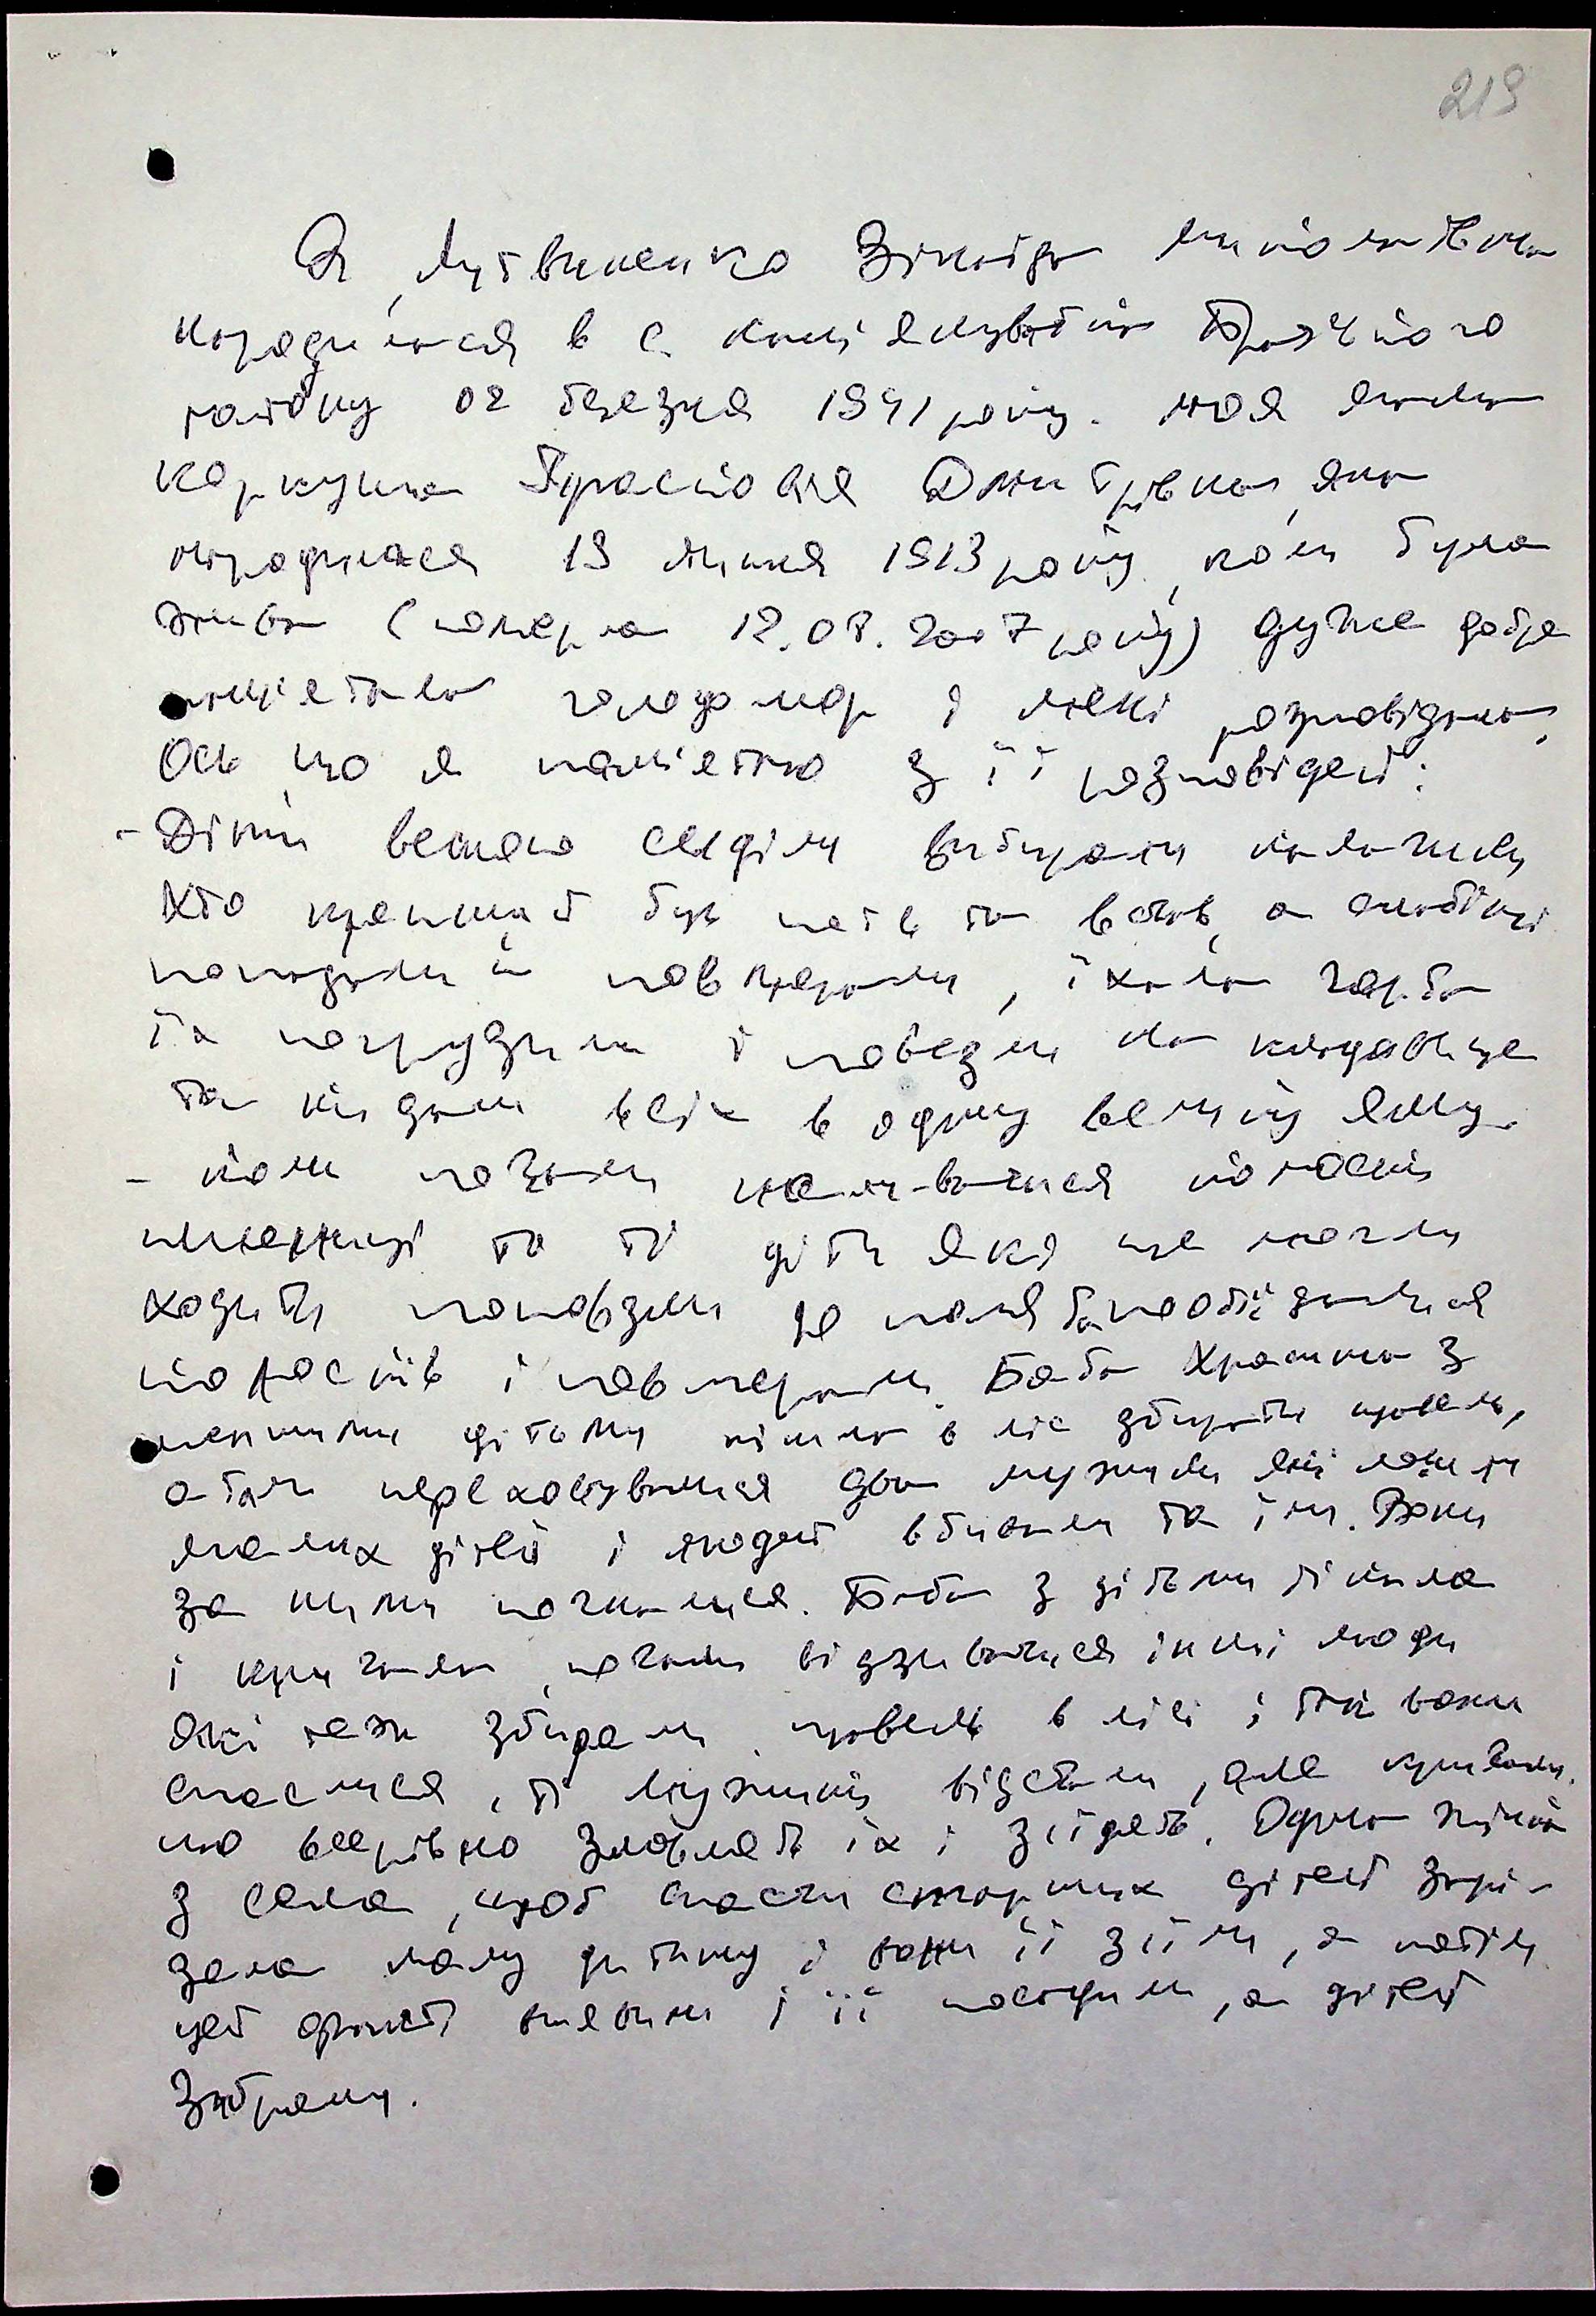 219
Я, Литвиненко Зінаїда Миколаївна
народилася в с.
району 02 березня 1941 року. моя мама
Коркушка Дмитрівна, яка
народилася 19 липня 1913 року, коли була
жива (померла 12.08.2007 року) дуже добре
пам'ятала голодомор і мені розповідала,
Ось що я пам'ятаю з її розповідей:
- Діти весною сиділи
Хто кріпший був та встав, а слабкі
попадали й повмирали, їхала гарба
їх погрузили і повезли на кладовище
та кидали всіх в одну велику яму.
- коли почали наливатися колоски
пшениці то ті діти які ще могли
ходити поповзли до поля та пооб'їдалися
колосків і повмирали. Баба з
меншими дітьми пішла в ліс збирати щавель,
а там переховувалися два мужики які ловили
малих дітей і людей вбивали та їли. Вони
за ними погналися. Баба з дітьми тікала
і кричала, почали відзиватися інші люди
які теж збирали щавель в лісі і так вони
спаслися, ті мужики відстали, але кричали,
що всерівно зловлять їх і з'їдять. Одна жінка
з села, щоб спасти старших дітей зарі-
зала малу дитину і вони її з'їли, а потім
цей факт виявили і її посадили, а дітей
забрали.